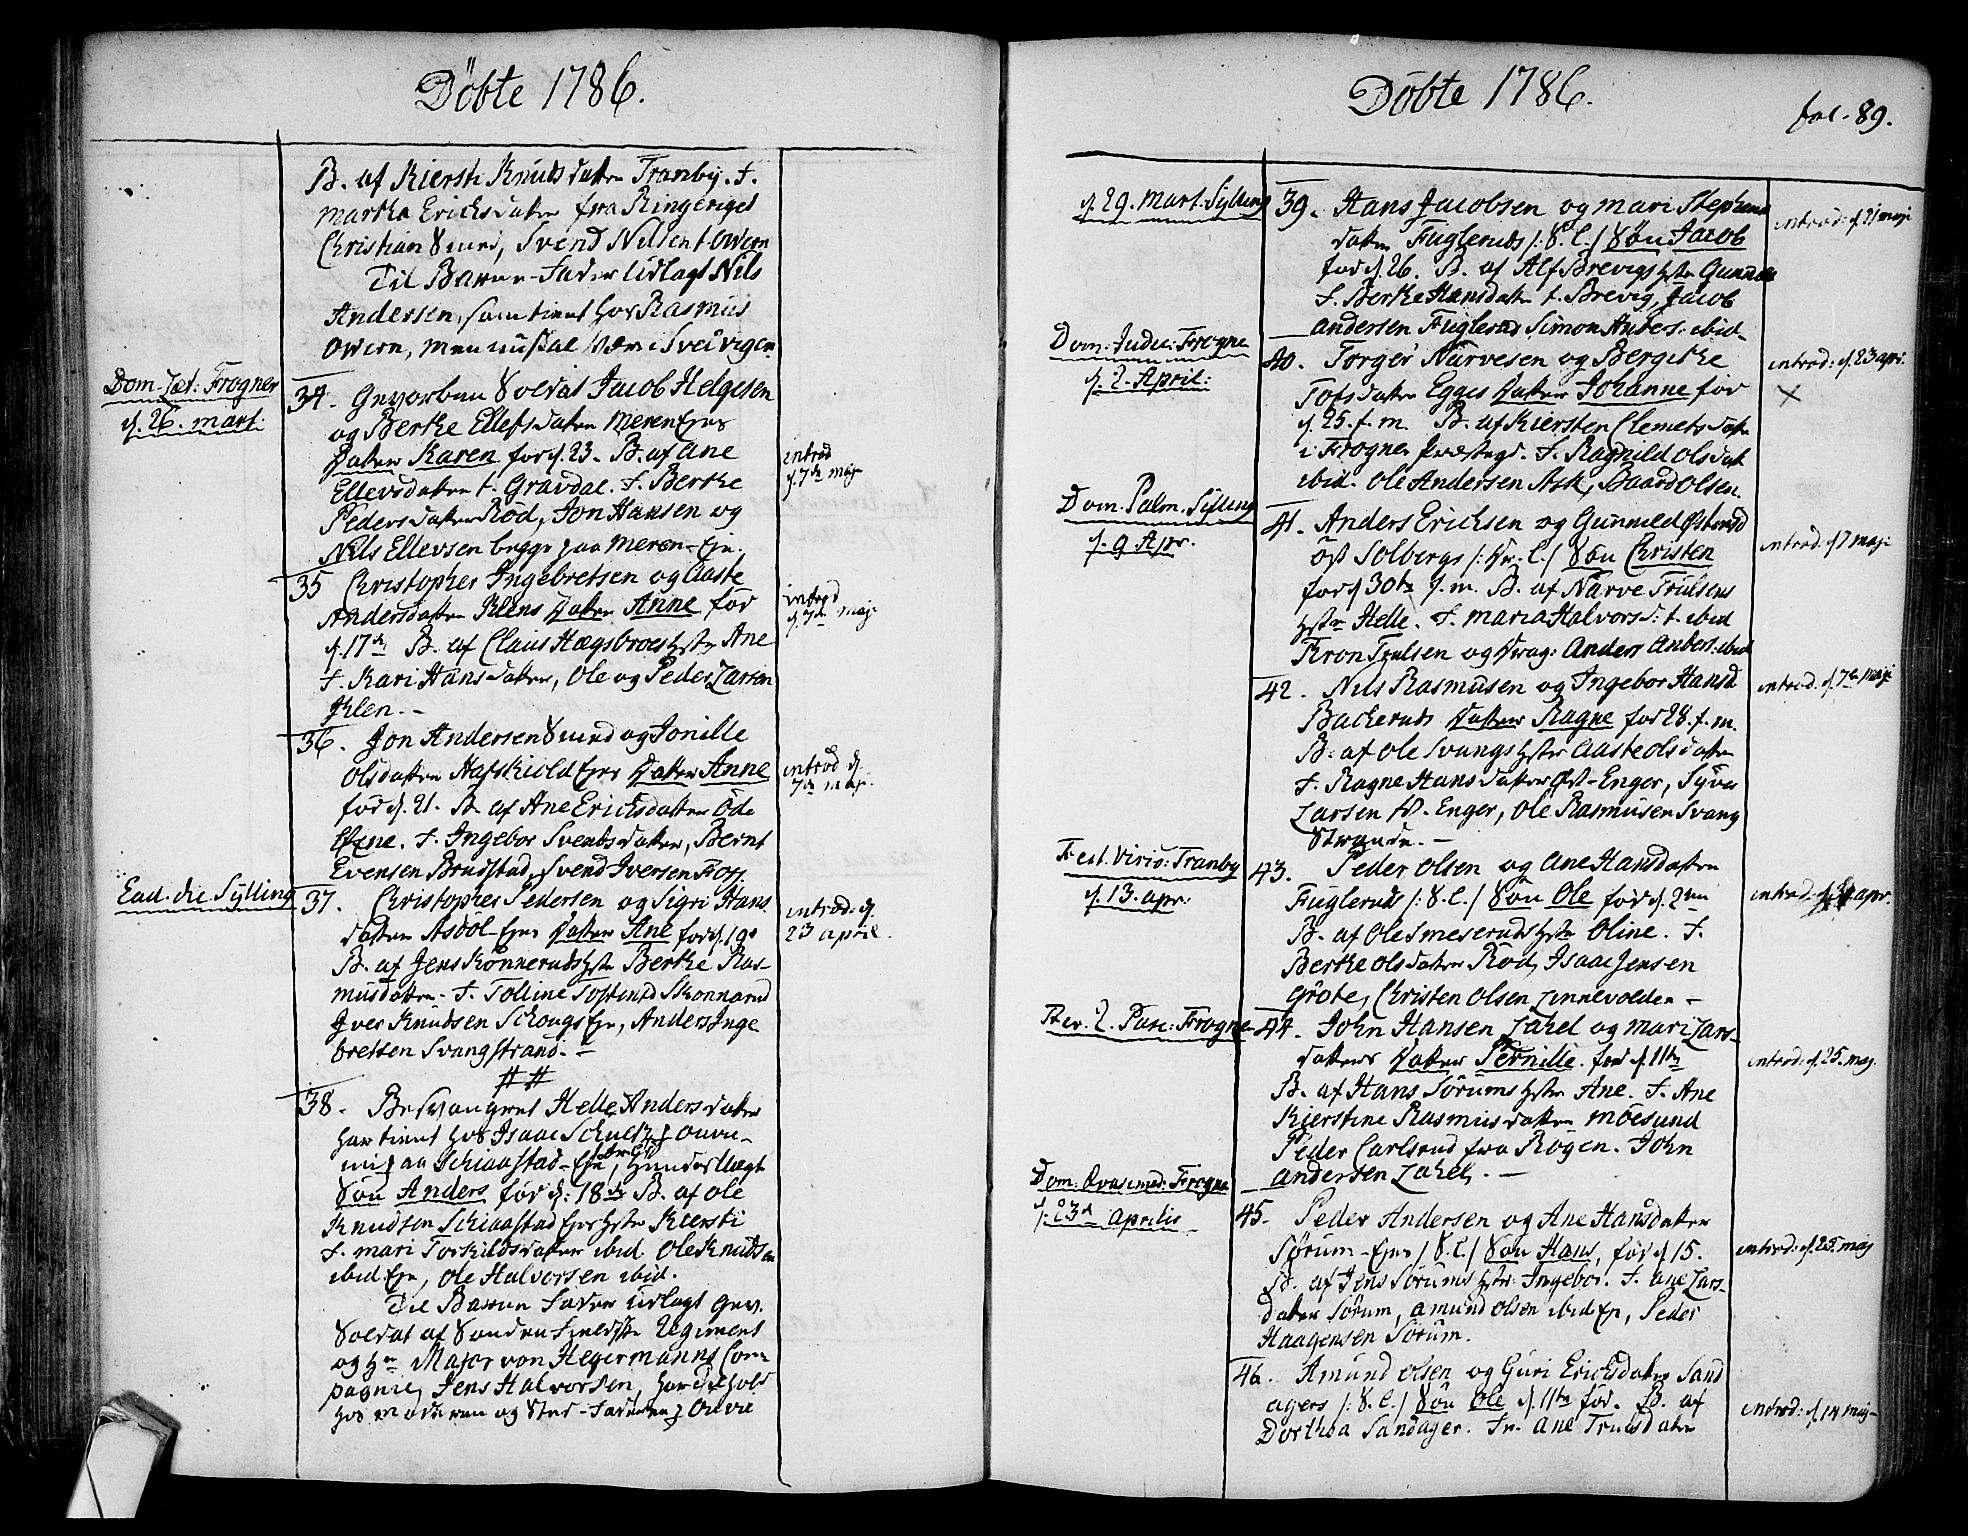 Döbte 1786.
B. af Kiersti Knuds datter Tranby. F.
Martha Erichs datter fra Ringeriget
Christian Smed, Svend Nilsen t. Overn
Til Barne-Fader Udlagt Nils
Andersen, som tient hos Rasmus
Overn, men nu skal være i Svelvigen
Dom. Læt: Frogner
d. 26. mart:
34. Gevorben Soldat Jacob Helgesen
og Berthe Ellefsdatter Meren Ejes
Datter Karen for d. 23. B. af Ane
Ellevsdatter t. Gravdal. F. Berthe
Peders datter Röd, Jon Hansen og
Nils Ellevsen begge paa Meren-Eje.
introd
d. 7de maj
35 Christopher Ingebretsen og Aaste
Andersdatter Klens Datter Anne för
d. 17de B. af Claus Hægsbroes Hstr Ane
F. Kari Hans datter, Ole og Peder Larsen
Klen. –
introd
d. 7de maj
36. Jon Andersen Smed og Jonille
Olsdatter Hafskiold Ejes Datter Anne
for d. 21. B. af Ane Erichsdatter Öde
F. Ingebor Svends datter, Bernt
Evensen Brudstad, Svend Iversen Foss.
introd d.
7de maj.
Ead. die Sylling
37. Christopher Pedersen og Sigri Hans
datter Asdöl-Ejes Datter Ane for d. 19.
B. af Jens Konneruds Hstr Berthe Ras-
musdatter. F. Tolline Tostensd Skonnarud
Iver Knudsen Schougs Eje, Anders Inge
bretsen Svangstrand. –
introd: d.
23 april.
38. Besvangret Helle Anders datter
har tient hos Isaac
paa Schiaastad-Eje,
Sön Anders för d: 18de B. af Ole
Knudsen Schiaastad Ejes Hstr Kiersti
F. Mari Torkildsdatter ibid. Ole Knudsen
ibid Eje, Ole Halvorsen ibid.
Til Barne Fader Udlagt Gev.
Soldat af Söndenfieldske Regiment
og Hr Major von Hegermanns Com-
pagnie, Jens Halvorsen,
hos Moderen og Sted-Faderen
Döbte 1786.
fol. 89.
d. 29. Mart. Sylling
39. Hans Jacobsen og Mari Stephens
datter Fugleruds /: S. l. / Sön Jacob
för d. 26. B. af Alf Brevigs Hstr Gunnor
F. Berthe Hansdatter t. Brevig, Jacob
Andersen Fuglerud Simon Anders: ibid.
introd: d. 21 maji
Dom: Judic: Frogne
d. 2. April:
40. Torger Narvesen og Bergithe
Tofsdatter Egges Datter Johanne för
d. 25. f. m. B. af Kiersten Clemets datr
i Frogner Præstegd. F. Ragnild Olsdatr
ibid. Ole Andersen Ask, Baard Olsen.
introd: d. 23 apr.
×
Dom. Palm. Sylling
d. 9 Apr.
41. Anders Erichsen og Gunnild
Öst Solbergs Sön Christen
for d 30te f. m. B. af Narve Trulsens
Hstr Helle. F. Maria Halvorsd: t. ibid
Tron Trulsen og Drag: Anders Anders. ibid
introd: d 7 maji
42. Nils Rasmusen og Ingebor Hansd
Backeruds Datter Ragne for 28. f. m.
B: af Ole Svangs Hstr Aaste Olsdatter
F. Ragne Hans datter Öst-Enger, Syver
Larsen W. Enger, Ole Rasmusen Svang
Strande. –
introd: d. 7de maji
Fest. Virid: Tranby
d. 13. apr:
43. Peder Olsen og Ane Hansdatter
Fugleruds /: S. l. / Sön Ole för d. 2den
B. af Ole Smeseruds Hstr Oline. F.
Berthe Olsdatter Röd, Isaac Jensen
Gröte, Christen Olsen Linnevolden –
introd: apr.
Fer. 2. Pasc: Frogne
44. John Hansen Lahel og Mari Lars-
datters Datter Pernille. for d. 11te
B. af Hans Sörums Hstr Ane. F. Ane
Kierstine Rasmusdatter Möesund
Peder Carlsrud fra Rögen. John
Andersen Lahel. –
introd: d. 25. maj.
Dom: Qvasimod: Frogne
d. 23d Aprilis
45. Peder Andersen og Ane Hansdatter
Sörum-Ejes / S. l. / Sön Hans, för d 15.
B. af Jens Sörums Hstr: Ingebor. F. Ane Lars-
datter Sörum, Amund Olsen ibid Eje, Peder
Haagensen Sörum.
introd: d. 25. maj
46. Amund Olsen og Guri Erichsdatter Sand
agers /: S. l. / Sön Ole d. 11te för. B. af
Dorthea Sandager. Fr. Ane Trulsdatter
introd: d. 14 maj